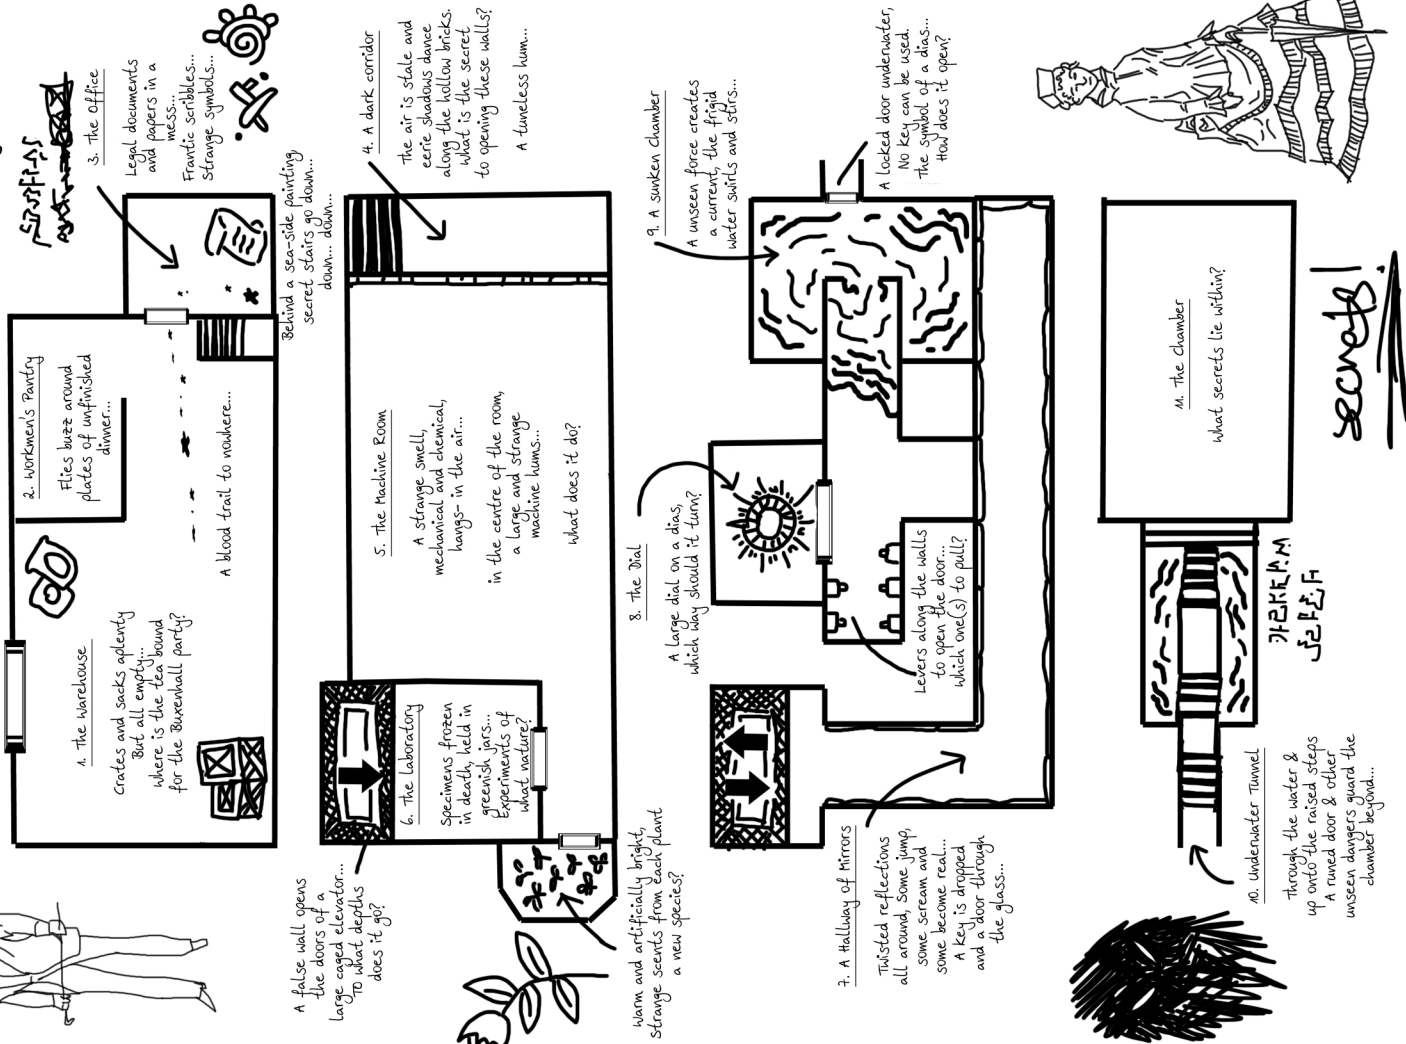 1. The Warehouse
Crates and sacks aplenty
But all empty...
Where is the tea bound
for the Buxenhall party?
2. Workmen's Pantry
Flies buzz around
plates of unfinished
dinner...
A blood trail to nowhere...
3. The Office
Legal documents
and papers in a
mess...
Frantic scribbles...
Strange symbols...
Behind a sea-side painting,
secret stairs go down...
down... down...
4. A dark corridor
The air is stale and
eerie shadows dance
along the hollow bricks.
What is the secret
to opening these walls?
A tuneless hum...
5. The Machine Room
A strange smell,
mechanical and chemical,
hangs- in the air...
in the centre of the room,
a large and strange
machine hums...
What does it do?
6. The Laboratory
Specimens frozen
in death, held in
greenish jars...
Experiments of
what nature?
A false wall opens
the doors of a
large caged elevator...
TO what depths
does it go?
Warm and artificially bright,
strange scents from each plant
a new species?
7. A Hallway of Mirrors
Twisted reflections
all around, Some jump,
some scream and
some become real...
A key is dropped
and a door through
the glass...
8. The Dial
A large dial on a dias,
which way should it turn?
Levers along the walls
to open the door...
which one(s) to pull?
9. A sunken chamber
A unseen force creates
a current, the frigid
water swirls and stirs...
A locked door underwater,
No key can be used.
The symbol of a dias...
How does it open?
10. Underwater Tunnel
Through the water &
up onto the raised steps
A runed door & other
unseen dangers guard the
chamber beyond...
11. The Chamber
What secrets lie within?
secrets!